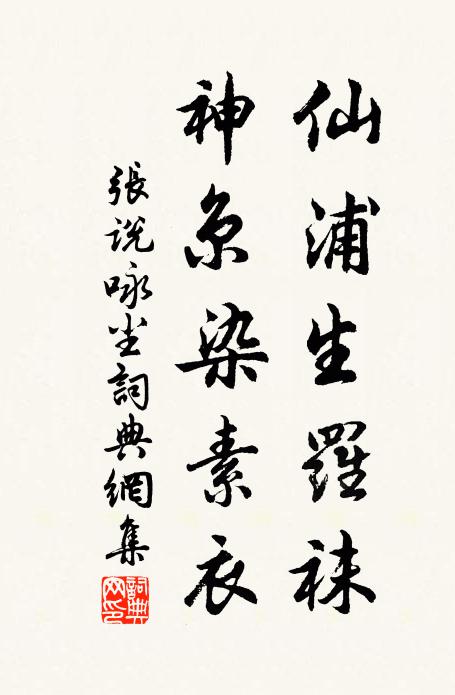 仙浦生羅袜
神京染素衣
張说咏尘詞典網集
詞典网印